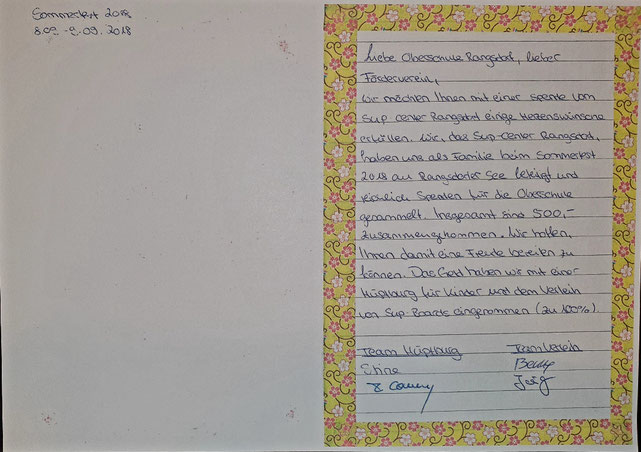 Sommerfest 2018
8.09.-9.09.2018
Liebe Oberschule Rangsdorf, lieber
Förderverein,
wir möchten Ihnen mit einer Spende vom
Sup Center Rangsdorf einige Herzenswünsche
erfüllen. Wir, das Sup-Center Rangsdorf,
haben uns als Familie beim Sommerfest
2018 am Rangsdorfer See beteiligt und
reichlich Spenden für die Oberschule
gesammelt. Insgesamt sind 500,-
zusammengekommen. Wir hoffen,
Ihnen damit eine Freude bereiten zu
können. Das Geld haben wir mit einer
Hüpfburg für Kinder und dem Verleih
von Sup-Boards eingenommen (zu 100%).
Team Hüpfburg Team Verleih
Stine
& Conny